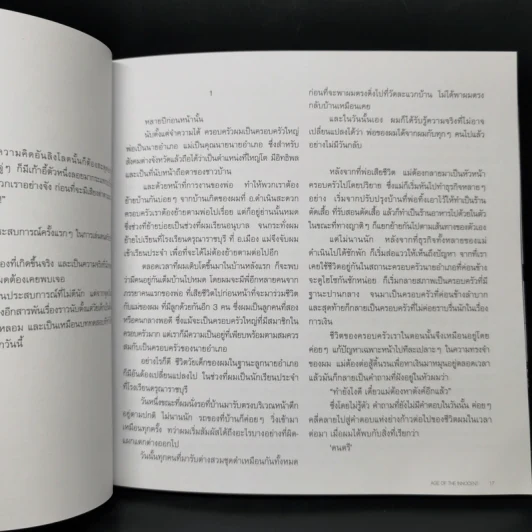 ความคิดอันลิงโลดนั้นก็ต้อง
ๆ ก็มีเก้าอี้ตัวหนึ่งลอยมา
วกเราอย่างจัง ก่อนที่จะมีเสียง
ะสบการณ์ครั้งแรกๆ ในการเล่นดนตรี
องที่เกิดขึ้นจริง และเป็นความจริงที่
มดต้องเคยพบเจอ
นประสบการณ์ที่ไม่ดีนัก แต่จากจุดนั้น
หลอม และเป็นเหมือนบททดสอบ
าวันนี้
1
หลายปีก่อนหน้านั้น
นับตั้งแต่จำความได้ ครอบครัวผมเป็นครอบครัวใหญ่
พ่อเป็นนายอำเภอ แม่เป็นคุณนายนายอำเภอ ซึ่งสำหรับ
สังคมต่างจังหวัดแล้วถือได้ว่าเป็นตำแหน่งที่ใหญ่โต มีอิทธิพล
และเป็นที่นับหน้าถือตาของชาวบ้าน
และด้วยหน้าที่การงานของพ่อ ทำให้พวกเราต้อง
ย้ายบ้านกันบ่อยๆ จากบ้านเกิดของผมที่ อ.ดำเนินสะดวก
ครอบครัวเราต้องย้ายตามพ่อไปเรื่อย แต่ก็อยู่ย่านนั้นหมด
ซึ่งช่วงที่ย้ายบ่อยเป็นช่วงที่ผมเรียนอนุบาล จนกระทั่งผม
ย้ายไปเรียนที่โรงเรียนดรุณาราชบุรี ที่ อ.เมือง แม่จึงจับผม
เข้าเรียนประจำ เพื่อที่จะได้ไม่ต้องย้ายตามพ่อไปอีก
ตลอดเวลาที่ผมเติบโตขึ้นมาในบ้านหลังแรก ก็จะพบ
ว่ามีคนอยู่กันเต็มบ้านไปหมด โดยผมจะมีพี่อีกหลายคนจาก
ภรรยาคนแรกของพ่อ ที่เสียชีวิตไปก่อนหน้าที่จะมาร่วมชีวิต
กับแม่ของผม ที่มีลูกด้วยกันอีก 3 คน ซึ่งผมเป็นลูกคนที่สอง
หรือคนกลางพอดี ซึ่งแม้จะเป็นครอบครัวใหญ่ที่มีสมาชิกใน
ครอบครัวมาก แต่เราก็มีความเป็นอยู่ที่เพียบพร้อมตามสมควร
สมกับเป็นครอบครัวของนายอำเภอ
อย่างไรก็ดี ชีวิตวัยเด็กของผมในฐานะลูกนายอำเภอ
ก็มีอันต้องเปลี่ยนแปลงไป ในช่วงที่ผมเป็นนักเรียนประจำ
ที่โรงเรียนดรุณาราชบุรี
วันหนึ่งขณะที่ผมนั่งรอที่บ้านมารับตรงบริเวณหน้าตึก
อยู่ตามปกติ ไม่นานนัก รถของที่บ้านก็ค่อยๆ วิ่งเข้ามา
เหมือนทุกครั้ง ทว่าผมเริ่มสัมผัสได้ถึงอะไรบางอย่างที่ผิด-
แผกแตกต่างออกไป
วันนั้นทุกคนที่มารับต่างสวมชุดดำเหมือนกันทั้งหมด
ก่อนที่จะพาผมตรงดิ่งไปที่วัดละแวกบ้าน ไม่ได้พาผมตรง
กลับบ้านเหมือนเคย
และในวันนั้นเอง ผมก็ได้รับรู้ความจริงที่ไม่อาจ
เปลี่ยนแปลงได้ว่า พ่อของผมได้จากผมกับทุกๆ คนไปแล้ว
อย่างไม่มีวันกลับ
หลังจากที่พ่อเสียชีวิต แม่ต้องกลายมาเป็นหัวหน้า
ครอบครัวไปโดยปริยาย ซึ่งแม่ก็เริ่มหันไปทำธุรกิจหลายๆ
อย่าง เริ่มจากปรับปรุงบ้านที่พ่อทิ้งเอาไว้ให้ทำเป็นร้าน
ตัดเสื้อ ที่รับสอนตัดเสื้อ แล้วก็ทำเป็นร้านอาหารไปด้วยในตัว
ในขณะที่ทางญาติๆ ก็แยกย้ายกันไปตามเส้นทางของตัวเอง
แต่ไม่นานนัก หลังจากที่ธุรกิจทั้งหลายของแม่
ดำเนินไปได้ซักพัก ก็เริ่มส่อแววให้เห็นถึงปัญหา จากที่เรา
เคยใช้ชีวิตอยู่กันในสถานะครอบครัวนายอำเภอที่ค่อนข้าง
จะดูไฮโซกันซักหน่อย ก็เริ่มกลายสภาพเป็นครอบครัวที่มี
ฐานะปานกลาง จนมาเป็นครอบครัวที่ค่อนข้างลำบาก
และสุดท้ายก็กลายเป็นครอบครัวที่ไม่ค่อยราบรื่นนักในเรื่อง
การเงิน
ชีวิตของครอบครัวเราในตอนนั้นจึงเหมือนอยู่โดย
ค่อยๆ แก้ปัญหาเฉพาะหน้าไปทีละเปลาะๆ ในความทรงจำ
ของผม แม่ต้องต่อสู้ดิ้นรนเพื่อหาเงินมาหมุนอยู่ตลอดเวลา
แล้วมันก็กลายเป็นคำถามที่ฝังอยู่ในหัวผมว่า
“ทำยังไงดี เดี๋ยวแม่ต้องหาตังค์อีกแล้ว”
ซึ่งโดยไม่รู้ตัว คำถามที่ยังไม่มีคำตอบในวันนั้น ค่อยๆ
คลี่คลายไปสู่คำตอบแห่งย่างก้าวต่อไปของชีวิตผมในเวลา
ต่อมา เมื่อผมได้พบกับสิ่งที่เรียกว่า
‘ดนตรี’
AGE OF THE INNOCENT 17